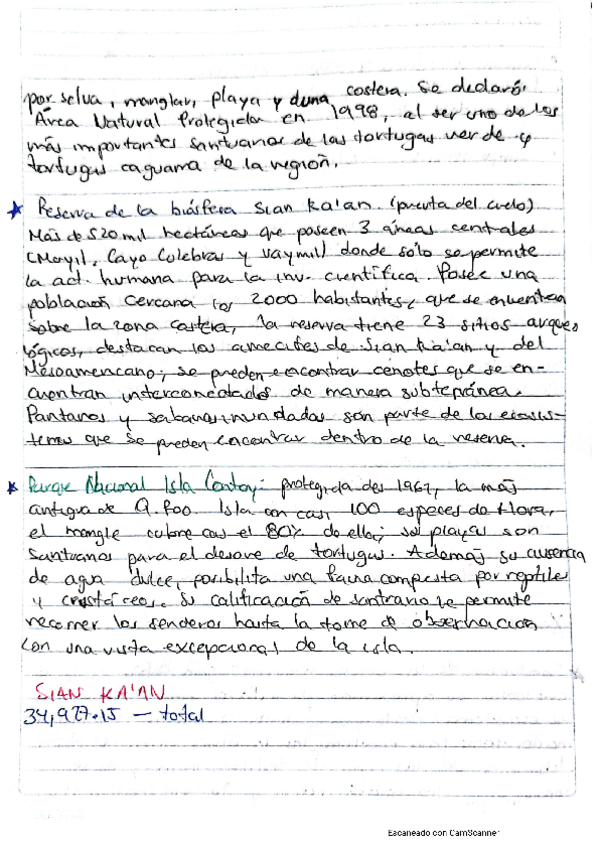 por selva, manglar, playa y duna costera. Se declaró
Área Natural Protegida en 1998, al ser uno de los
más importantes santuarios de las tortugas verde y
tortugas caguama de la región.
★ Reserva de la biósfera Sian Ka'an. (puerta del cielo)
Más de 520 mil hectáreas que poseen 3 áreas centrales
(Muyil, Cayo Culebras y Uaymil) donde sólo se permite
la act. humana para la inv. científica. Posee una
población cercana los 2000 habitantes, que se encuentran
sobre la zona costera, la reserva tiene 23 sitios arqueo
lógicos, destacan los arrecifes de Sian Ka'an y del
Mesoamericano; se pueden encontrar cenotes que se en-
cuentran interconectados de manera subterránea.
Pantanos y sabanas inundadas son parte de los ecosis-
temas que se pueden encontrar dentro de la reserva.
★ Parque Nacional Isla Contoy: protegida des 1961, la más
antigua de Q. Roo. Isla con casi 100 especes de flora,
el mangle cubre cas el 80% de ella; sus playas son
santuarios para el desove de tortugas. Además su ausencia
de agua dulce, posibilita una fauna compuesta por reptiles
y crustáceos. Su calificación de santuario le permite
recorrer los senderos hasta la torre de observación
con una vista excepcional de la isla.
SIAN KA'AN
34,927.15 — total
Escaneado con CamScanner